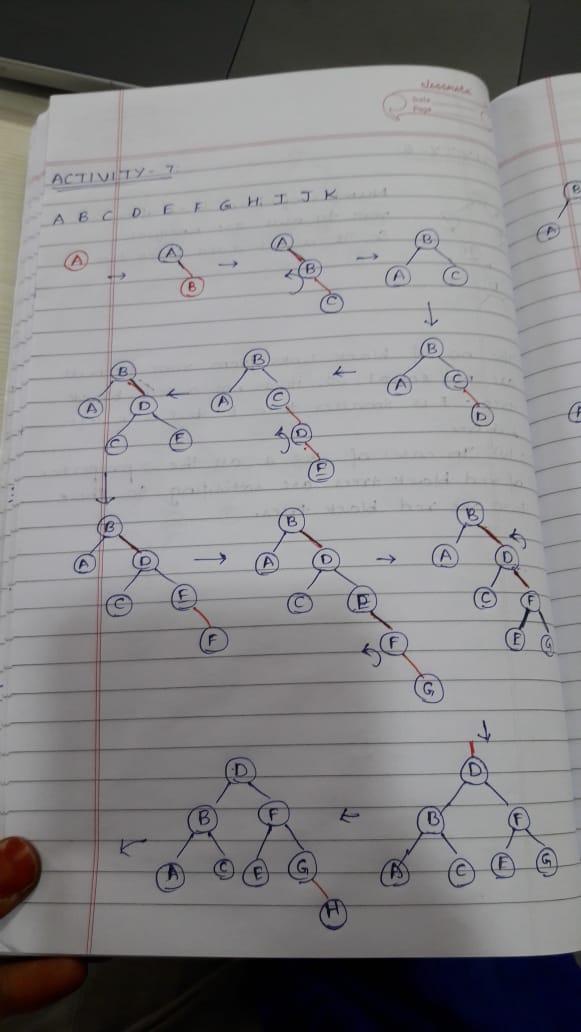 classmate
Date
Page
ACTIVITY - 7
A B C D E F G H I J K
A
A
B
A
B
C
B
A C
B
A C
D
B
A C
D
E
B
A D
C E
B
A D
C E
F
B
A D
C E
F
G
B
A D
C F
E G
D
B F
A C E G
H
D
B F
A C E G
B
A